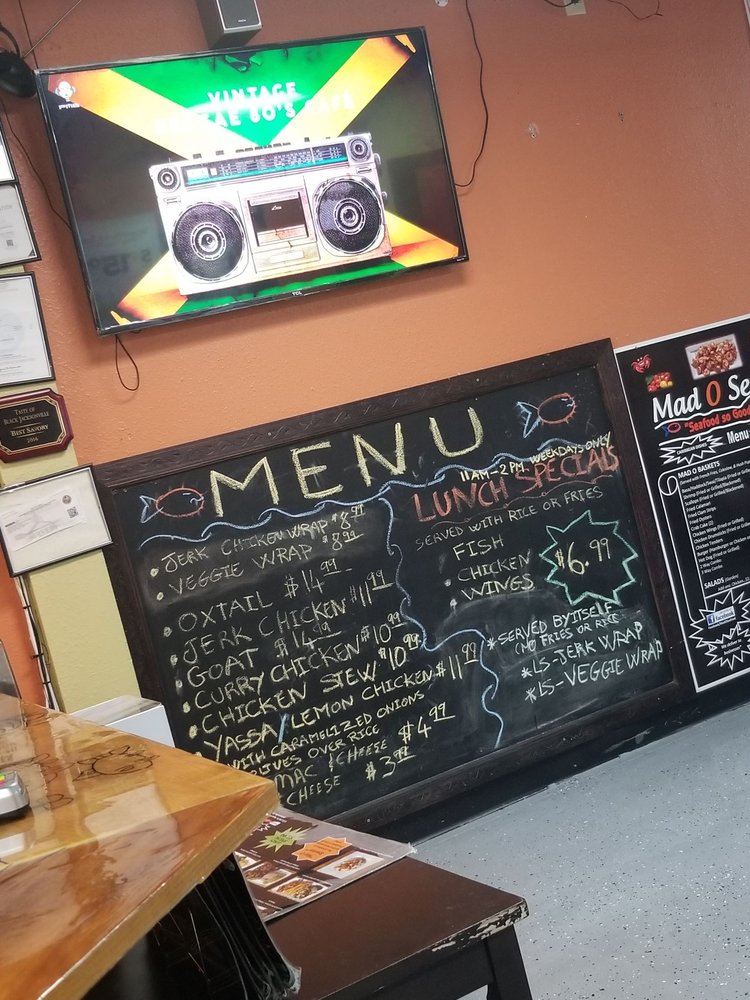 VINTAGE
REGGAE 80'S CAFE
TCL
TASTE OF
BLACK JACKSONVILLE
BEST SAVORY
2016
MENU
JERK CHICKEN WRAP $8.99
VEGGIE WRAP $8.99
OXTAIL $14.99
JERK CHICKEN $11.99
GOAT $14.99
CURRY CHICKEN $10.99
CHICKEN STEW $10.99
YASSA/LEMON CHICKEN $11.99
WITH CARAMELIZED ONIONS
OLIVES OVER RICE
MAC & CHEESE $4.99
CHEESE $3.99
11AM-2PM WEEKDAYS ONLY
LUNCH SPECIALS
SERVED WITH RICE OR FRIES
FISH
CHICKEN
WINGS
$6.99
*SERVED BY ITSELF
(NO FRIES OR RICE)
*LS-JERK WRAP
*LS-VEGGIE WRAP
Mad O Se
"Seafood so Good
Menu
MAD O BASKETS
Fried Clam Strips
Fried Oysters
Crab Cake (2)
Chicken Tenders
2 Way Combo
3 Way Combo
SALADS (Garden)